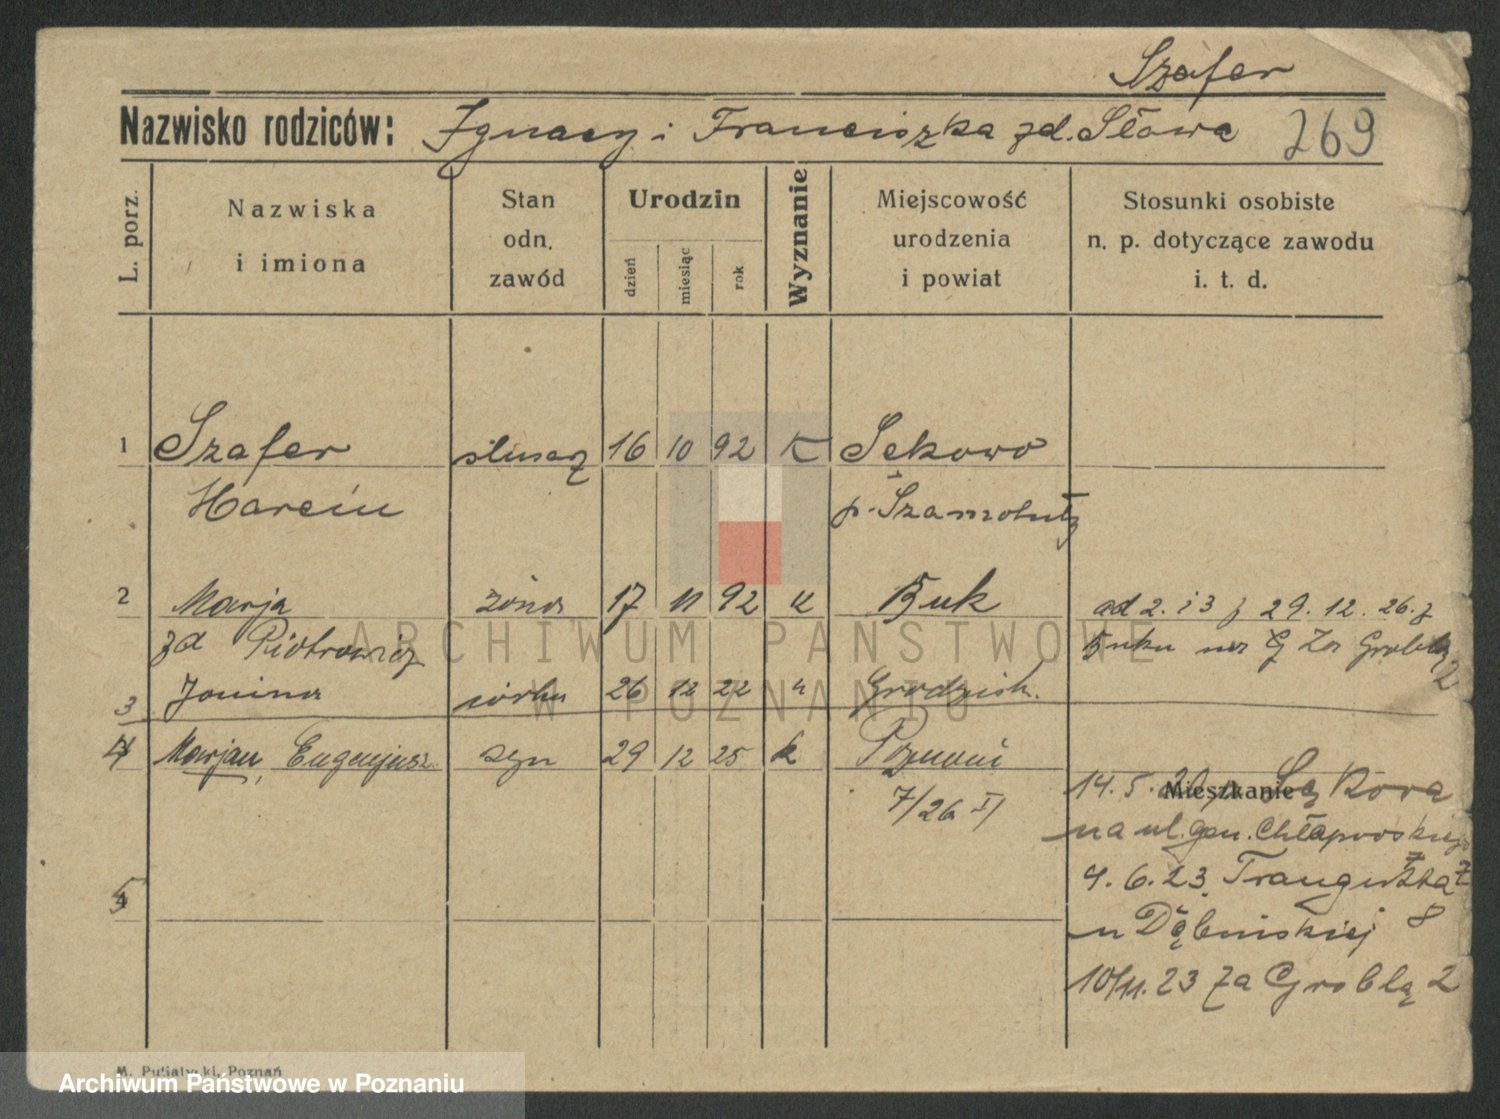 Szafer
Nazwisko rodziców: Ignacy i Franciszka zd. Słowa 269
L. porz.
Nazwiska
i imiona
Stan
odn.
zawód
Urodzin
dzień
miesiąc
rok
Wyznanie
Miejscowość
urodzenia
i powiat
Stosunki osobiste
n. p. dotyczące zawodu
i. t. d.
1 Szafer ślusarz 16 10 92 K Sekowo
Marcin p. Szamotuły
2 Marja żona 17 11 92 K Buk od 2. i 3 z 29. 12. 26. z
zd Piotrowicz Buku na Za Groblą 2
3 Janina córka 26 12 22 " Grodzisk.
4 Marjan, Eugenjusz syn 29 12 25 k Poznań
7/26 I/
Mieszkanie
14. 5. 20 z Sękowa
na ul. gen. Chłapowskiego
4. 6. 23. Traugutta
u Dębińskiej 8
10/11. 23 Za Groblą 2
5
M. Putiatycki, Poznań
ARCHIWUM PAŃSTWOWE
W POZNANIU
Archiwum Państwowe w Poznaniu